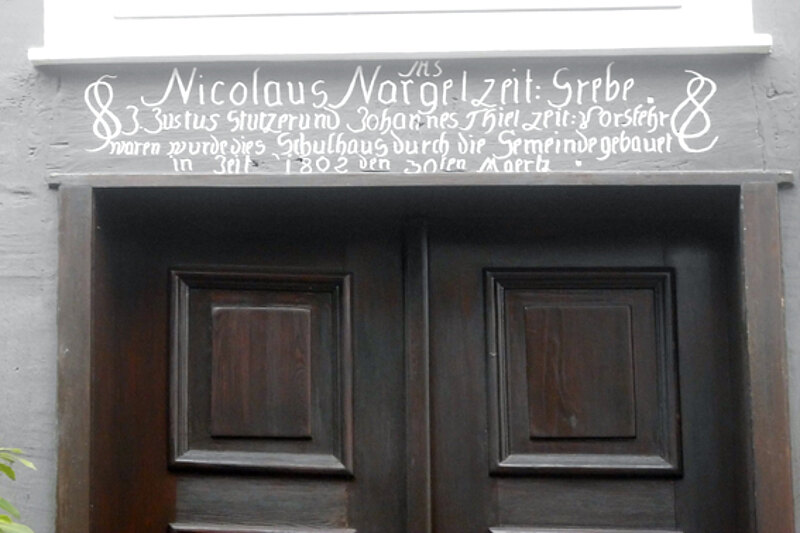 IHS
Nicolaus Nargel zeit: Grebe.
J. Justus Stutzer und Johannes Thiel zeit: Vorstehr
waren wurde dies Schulhaus durch die Gemeinde gebauet
in Zeit 1802 den 30ten Maertz.